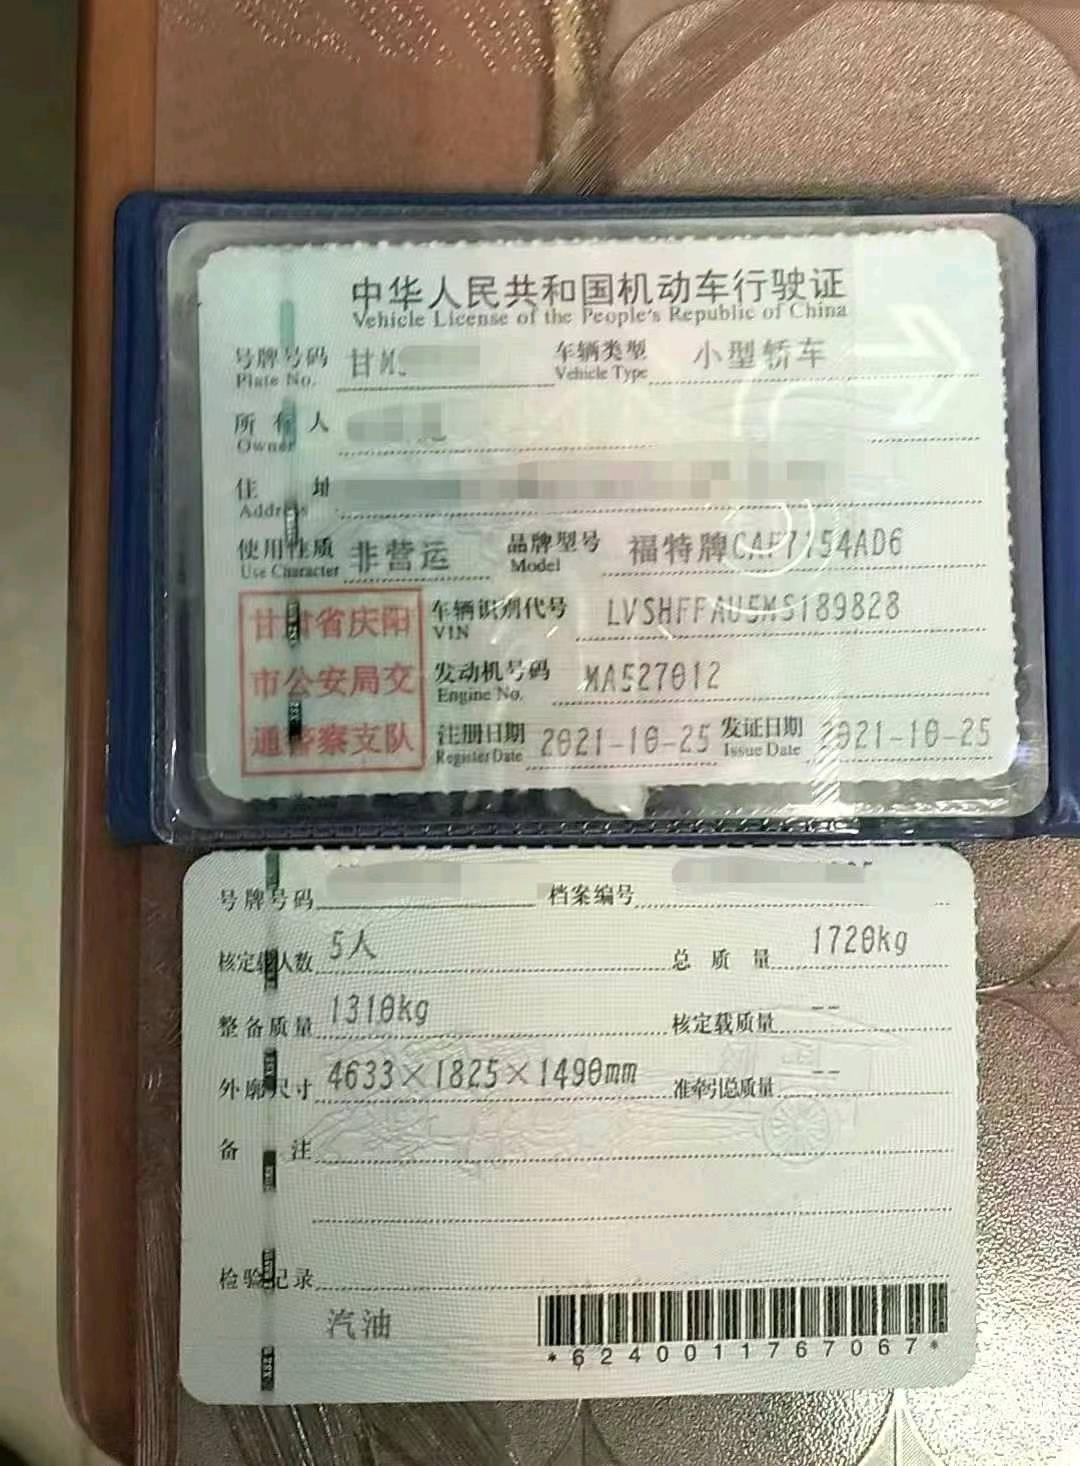 中华人民共和国机动车行驶证
Vehicle License of the People's Republic of China
号牌号码 甘M 车辆类型 小型轿车
Plate No. Vehicle Type
所有人
Owner
住址
Address
使用性质 非营运 品牌型号 福特牌CAF7154AD6
Use Character Model
甘肃省庆阳 车辆识别代号 LVSHFFAU5MS189828
VIN
市公安局交 发动机号码 MA527012
Engine No.
通警察支队 注册日期 2021-10-25 发证日期 2021-10-25
Register Date Issue Date
号牌号码 档案编号
核定载人数 5人 总质量 1720kg
整备质量 1310kg 核定载质量 --
外廓尺寸 4633×1825×1490mm 准牵引总质量 --
备注
检验记录
汽油
*6240011767067*